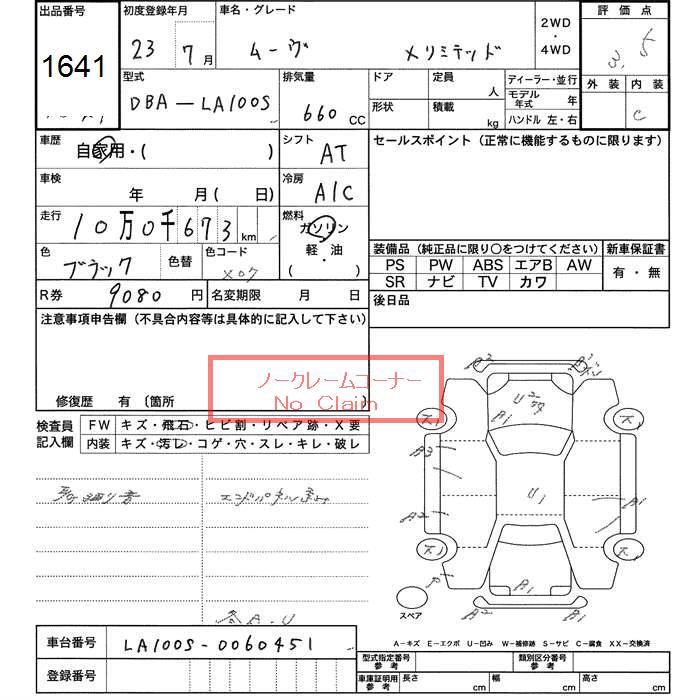 出品番号 初度登録年月 車名・グレード 2WD・4WD 評価点
1641 23 7月 ムーヴ Xリミテッド 3.5
外装 内装
C
型式 排気量 ドア 定員 人 ディーラー・並行
DBA-LA100S 660 CC 形状 積載 kg モデル年式 年
ハンドル 左・右
車歴 自家用・( ) シフト AT セールスポイント(正常に機能するものに限ります)
車検 年 月( 日) 冷房 A/C
走行 10万0千673km 燃料 ガソリン 軽・油 ( )
色 ブラック 色替 色コード X07
装備品(純正品に限り○をつけてください) 新車保証書
PS PW ABS エアB AW 有・無
SR ナビ TV カワ
R券 9080円 名変期限 月 日 後日品
注意事項申告欄(不具合内容等は具体的に記入して下さい)
ノークレームコーナー
No Claim
修復歴 有〔箇所
検査員記入欄 FW キズ・飛石・ヒビ割・リペア跡・X要
内装 キズ・汚レ・コゲ・穴・スレ・キレ・破レ
A2
U2
A1
A3
U1
A2 A1
A1 A1
A2 A1
スペア
A・U
車台番号 LA100S-0060451
A-キズ E-エクボ U-凹み W-補修跡 S-サビ C-腐食 XX-交換済
登録番号
型式指定番号 参考 類別区分番号 参考
車庫証明用 参考 長さ cm 幅 cm 高さ cm